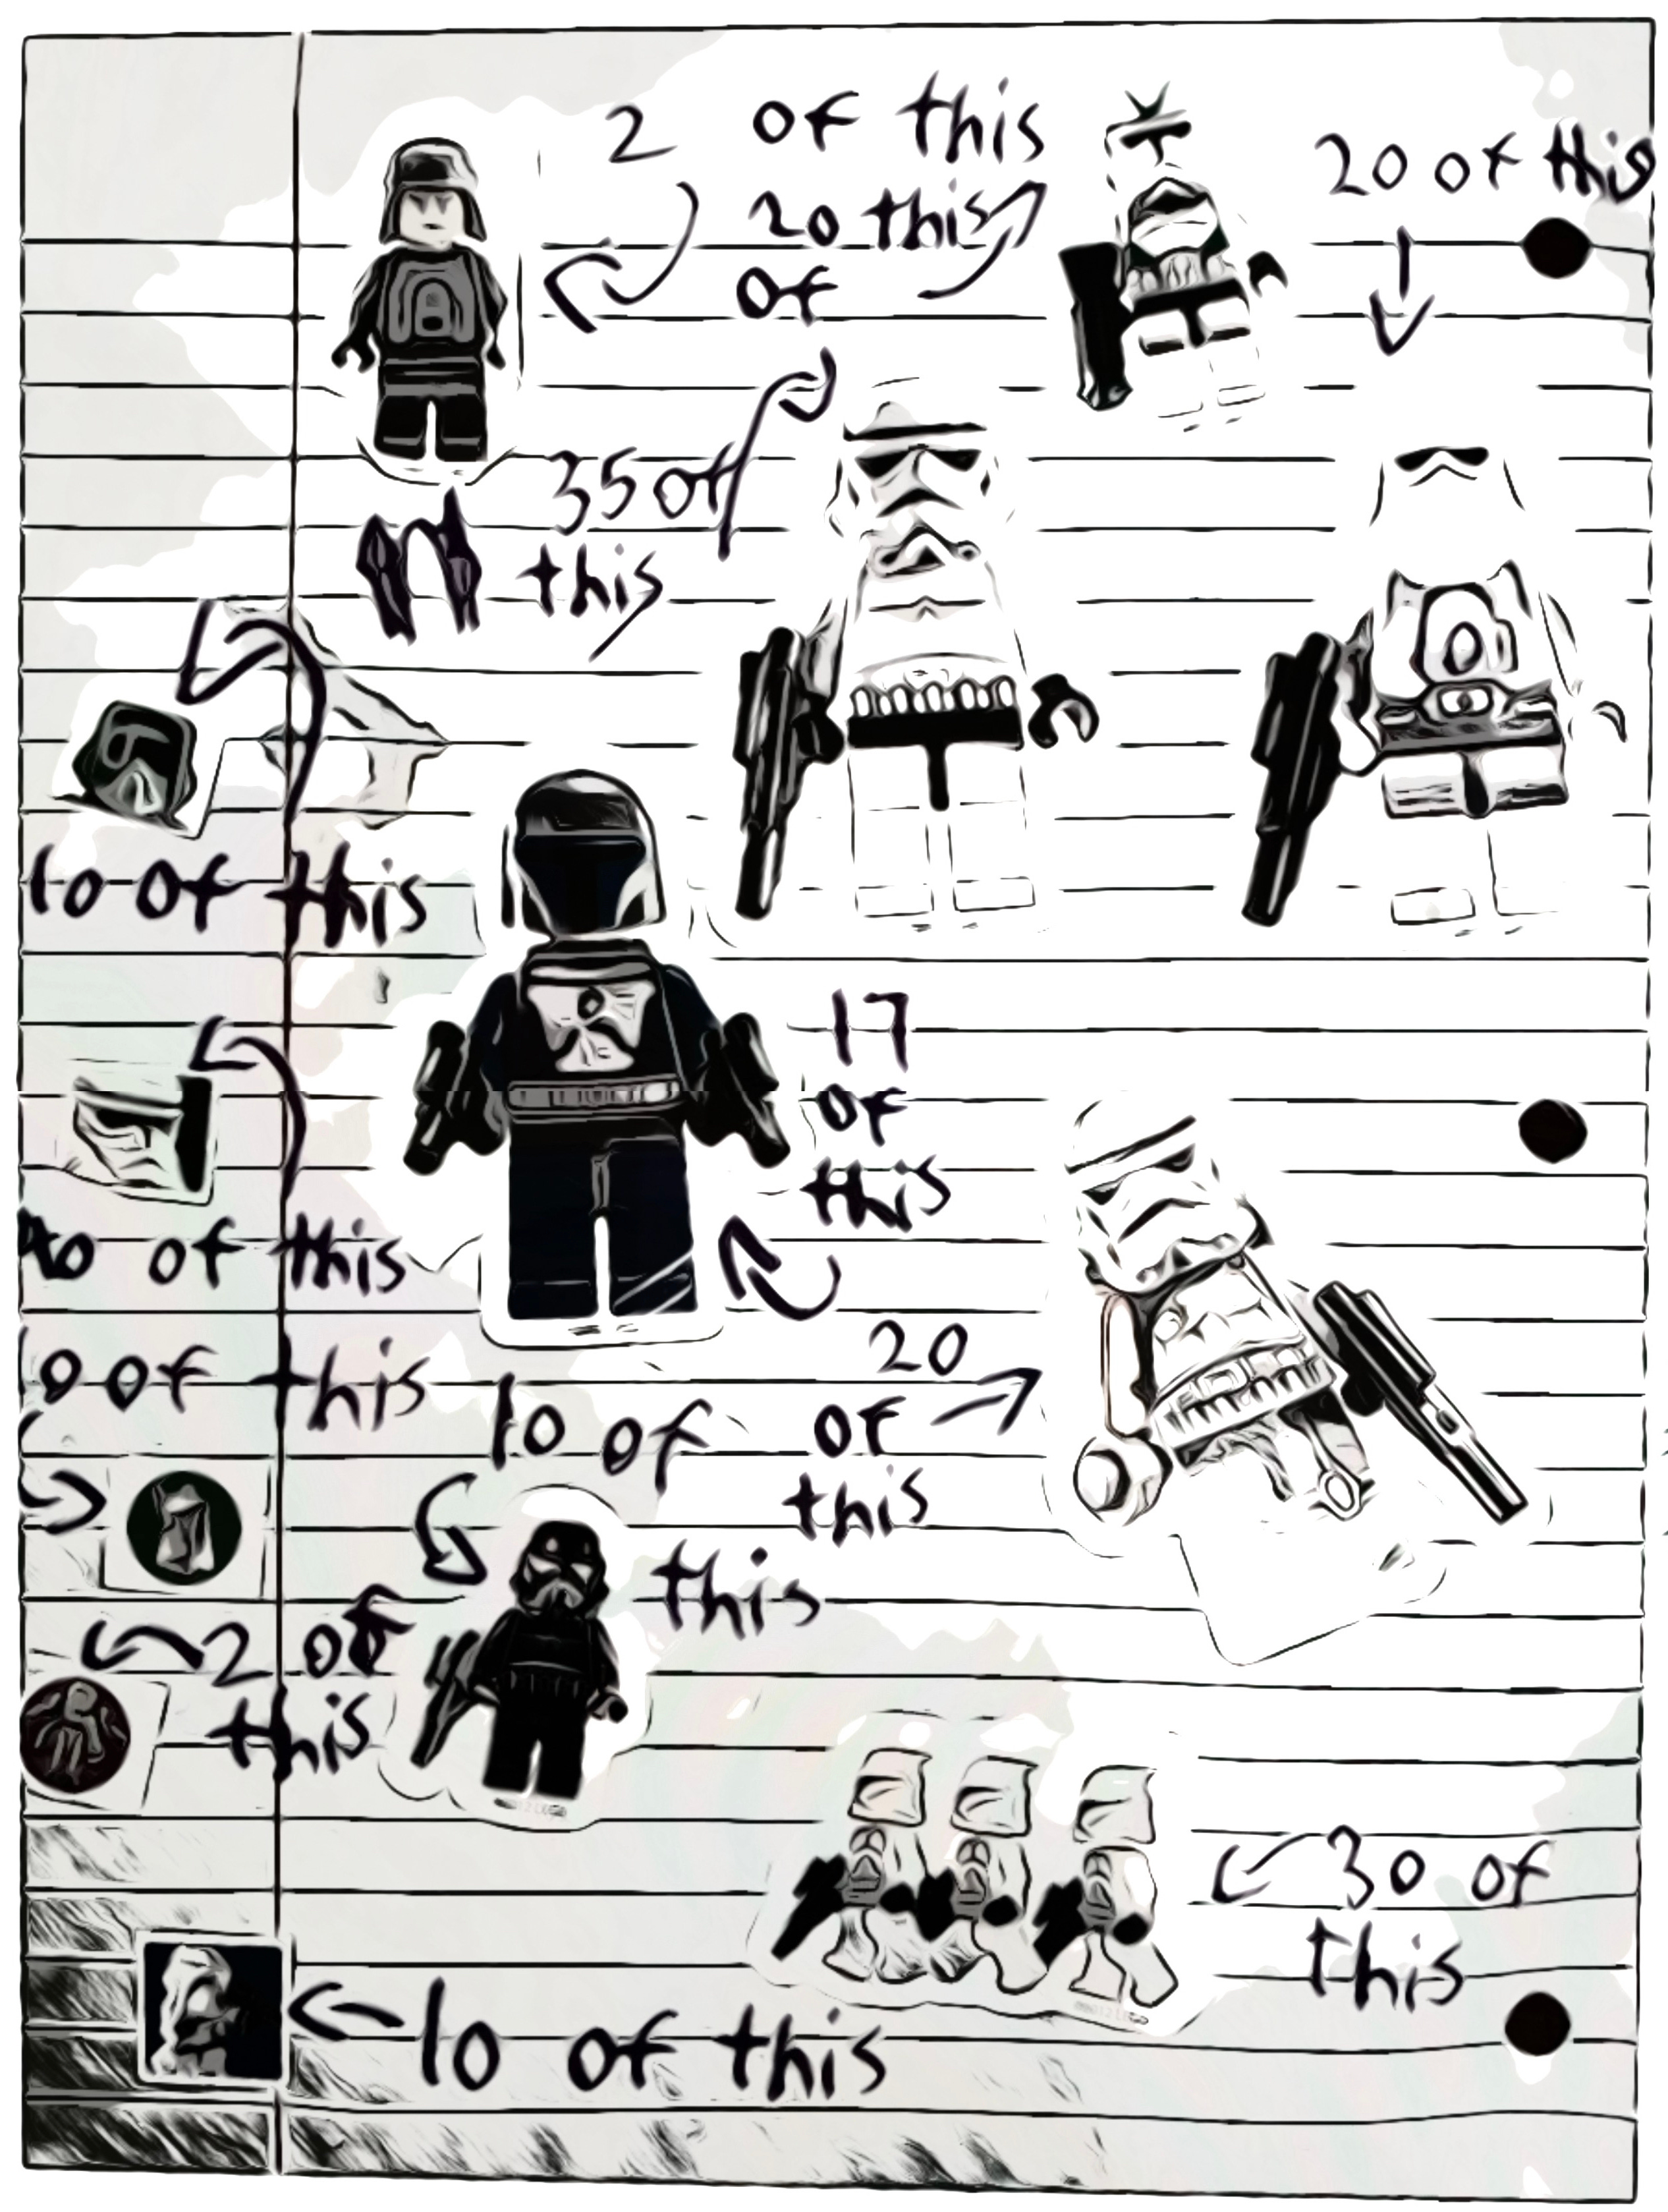 2 of this
20 this
of
20 of this
35 of
this
10 of this
17
of
this
of this
0 of this
20
of
this
10 of
this
2 of
this
30 of
this
10 of this